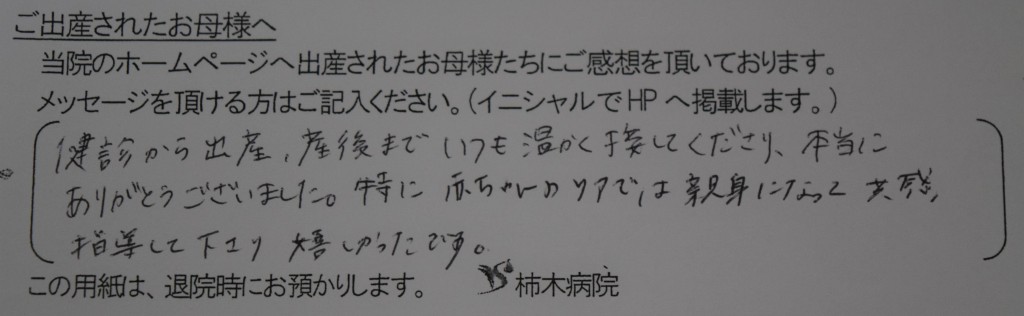 ご出産されたお母様へ
当院のホームページへ出産されたお母様たちにご感想を頂いております。
メッセージを頂ける方はご記入ください。(イニシャルでHPへ掲載します。)
健診から出産、産後までいつも温かく接してくださり、本当に
ありがとうございました。特に赤ちゃんのケアでは親身になって共感、
指導して下さり嬉しかったです。
この用紙は、退院時にお預かりします。 柿木病院